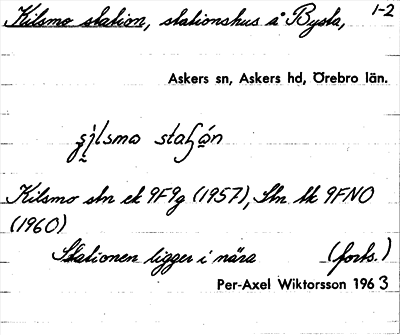 Kilsmo station, stationshus å Bysta, 1-2
Askers sn, Askers hd, Örebro län.
Kilsmo stn ek 9F9g (1957), Stn tk 9FNO
(1960)
Stationen ligger i nära (forts.)
Per-Axel Wiktorsson 1963